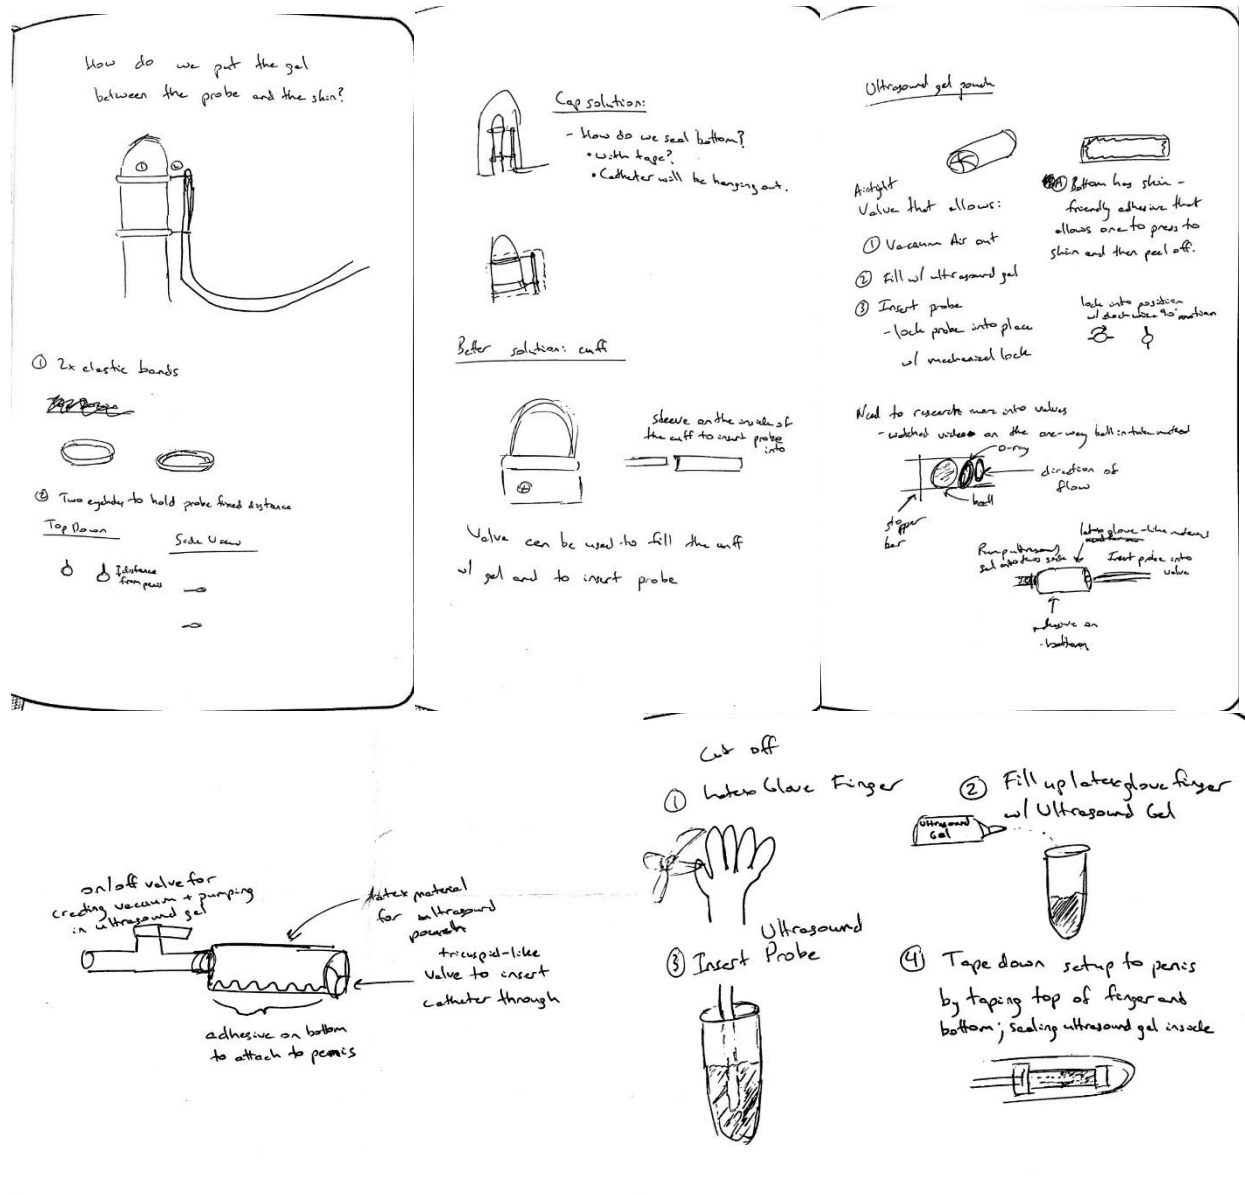 How do we put the gel
between the probe and the skin?
①
②
① 2x elastic bands
② Two eyelets to hold probe fixed distance
Top Down
Side View
distance
from penis
Cap solution:
- How do we seal bottom?
• with tape?
• Catheter will be hanging out.
Better solution: cuff
sleeve on the inside of
the cuff to insert probe
into
Valve can be used to fill the cuff
w/ gel and to insert probe
Ultrasound gel pouch
Airtight
Valve that allows:
① Vacuum Air out
② Fill w/ ultrasound gel
③ Insert probe
- lock probe into place
w/ mechanized lock
Bottom has skin-
friendly adhesive that
allows one to press to
skin and then peel off.
lock into position
w/ clockwise 90° motion
Need to research more into valves
- watched videos on the one-way ball in tube method
O-ring
direction of
flow
ball
stopper
bar
Pump ultrasound
gel into this side
latex glove-like material
Insert probe into
valve
adhesive on
bottom
on/off valve for
creating vacuum + pumping
in ultrasound gel
latex material
for ultrasound
pouch
tricuspid-like
valve to insert
catheter through
adhesive on bottom
to attach to penis
Cut off
① Latex Glove Finger
② Fill up latex glove finger
w/ Ultrasound Gel
Ultrasound
Gel
③ Insert Ultrasound
Probe
④ Tape down setup to penis
by taping top of finger and
bottom; sealing ultrasound gel inside